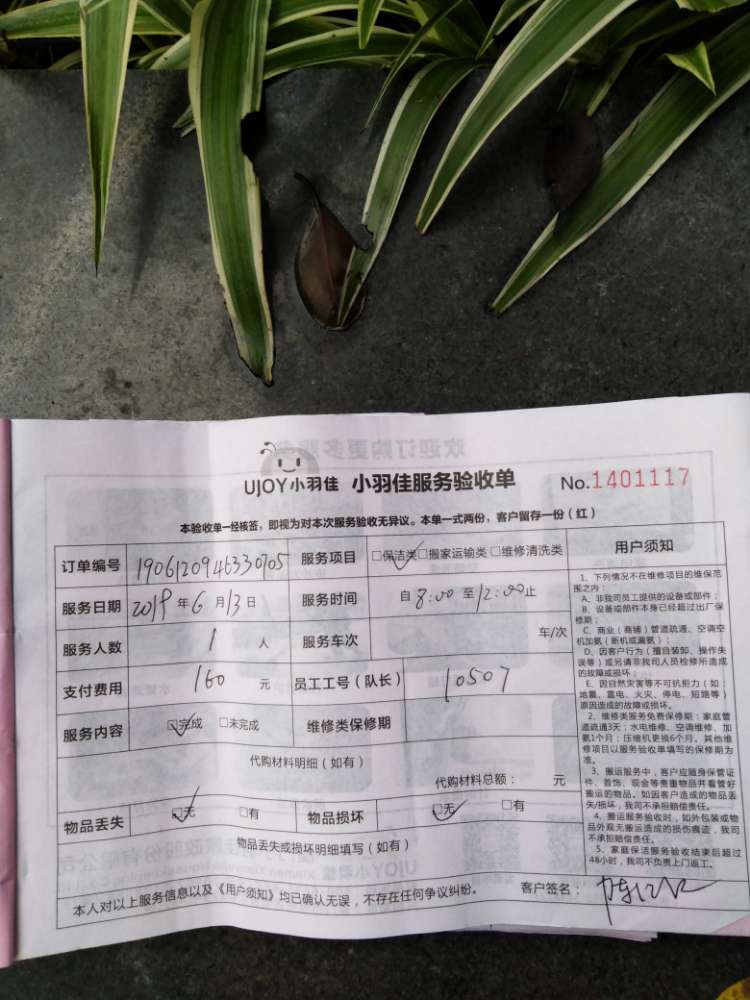 UJOY小羽佳 小羽佳服务验收单 No.1401117
本验收单一经核签，即视为对本次服务验收无异议。本单一式两份，客户留存一份（红）
订单编号 190612094633070​5 服务项目 □保洁类 □搬家运输类 □维修清洗类
服务日期 2019 年 6 月 13 日 服务时间 自 8:00 至 12:00 止
服务人数 1 人 服务车次 车/次
支付费用 160 元 员工工号（队长） 10507
服务内容 □完成 □未完成 维修类保修期
代购材料明细（如有）
代购材料总额： 元
物品丢失 □无 □有 物品损坏 □无 □有
物品丢失或损坏明细填写（如有）
本人对以上服务信息以及《用户须知》均已确认无误，不存在任何争议纠纷。 客户签名：
用户须知
1、下列情况不在维修项目的维保范
围之内：
A、非我司员工提供的设备或部件；
B、设备或部件本身已经超过出厂保
修期；
C、商业（商铺）管道疏通、空调空
机加氨（新机或漏氨）；
D、因客户行为（擅自装卸、操作失
误等）或另请非我司人员检修所造成
的故障或损坏；
E、因自然灾害等不可抗力（如：
地震、雷电、火灾、停电、短路等）
原因造成的故障或损坏。
2、维修类服务免费保修期：家庭管
道疏通3天；水电维修、空调维修、加
氨1个月；压缩机更换6个月。其他维
修项目以服务验收单填写的保修期为
准。
3、搬运服务中，客户应随身保管证
件、首饰、现金等贵重物品并看管好
搬运的物品。如因客户造成的物品丢
失/损坏，我司不承担赔偿责任。
4、搬运服务验收时，如外包装或物
品外观无搬运造成的损伤痕迹，我司不
承担赔偿责任。
5、家庭保洁服务验收结束后超过
48小时，我司不负责上门返工。